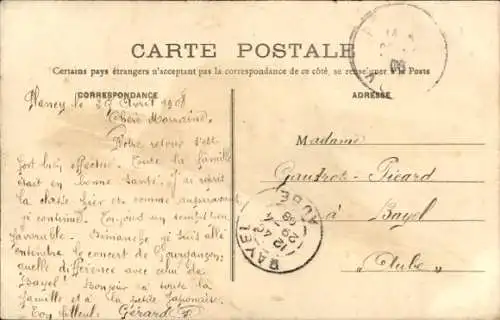 CARTE POSTALE
Certains pays étrangers n'acceptant pas la correspondance de ce côté, se renseigner à la Poste
CORRESPONDANCE
ADRESSE
Nancy le 28 Avril 1908
Chère Marraine,
Notre retour s'est
fort bien effectué. Toute la famille
était en bonne santé. J'ai repris
la classe hier et comme auparavant
je continue. Toujours un temps bien
favorable. Dimanche je suis allé
entendre le concert de
quelle différence avec celui de
Bayel! Bonjour à toute la
famille et à la petite Japonaise.
Ton filleul, Gérard P
Madame
Gautrot-Picard
à Bayel
"Aube"
BAYEL
AUBE
12 40
29 -4
08